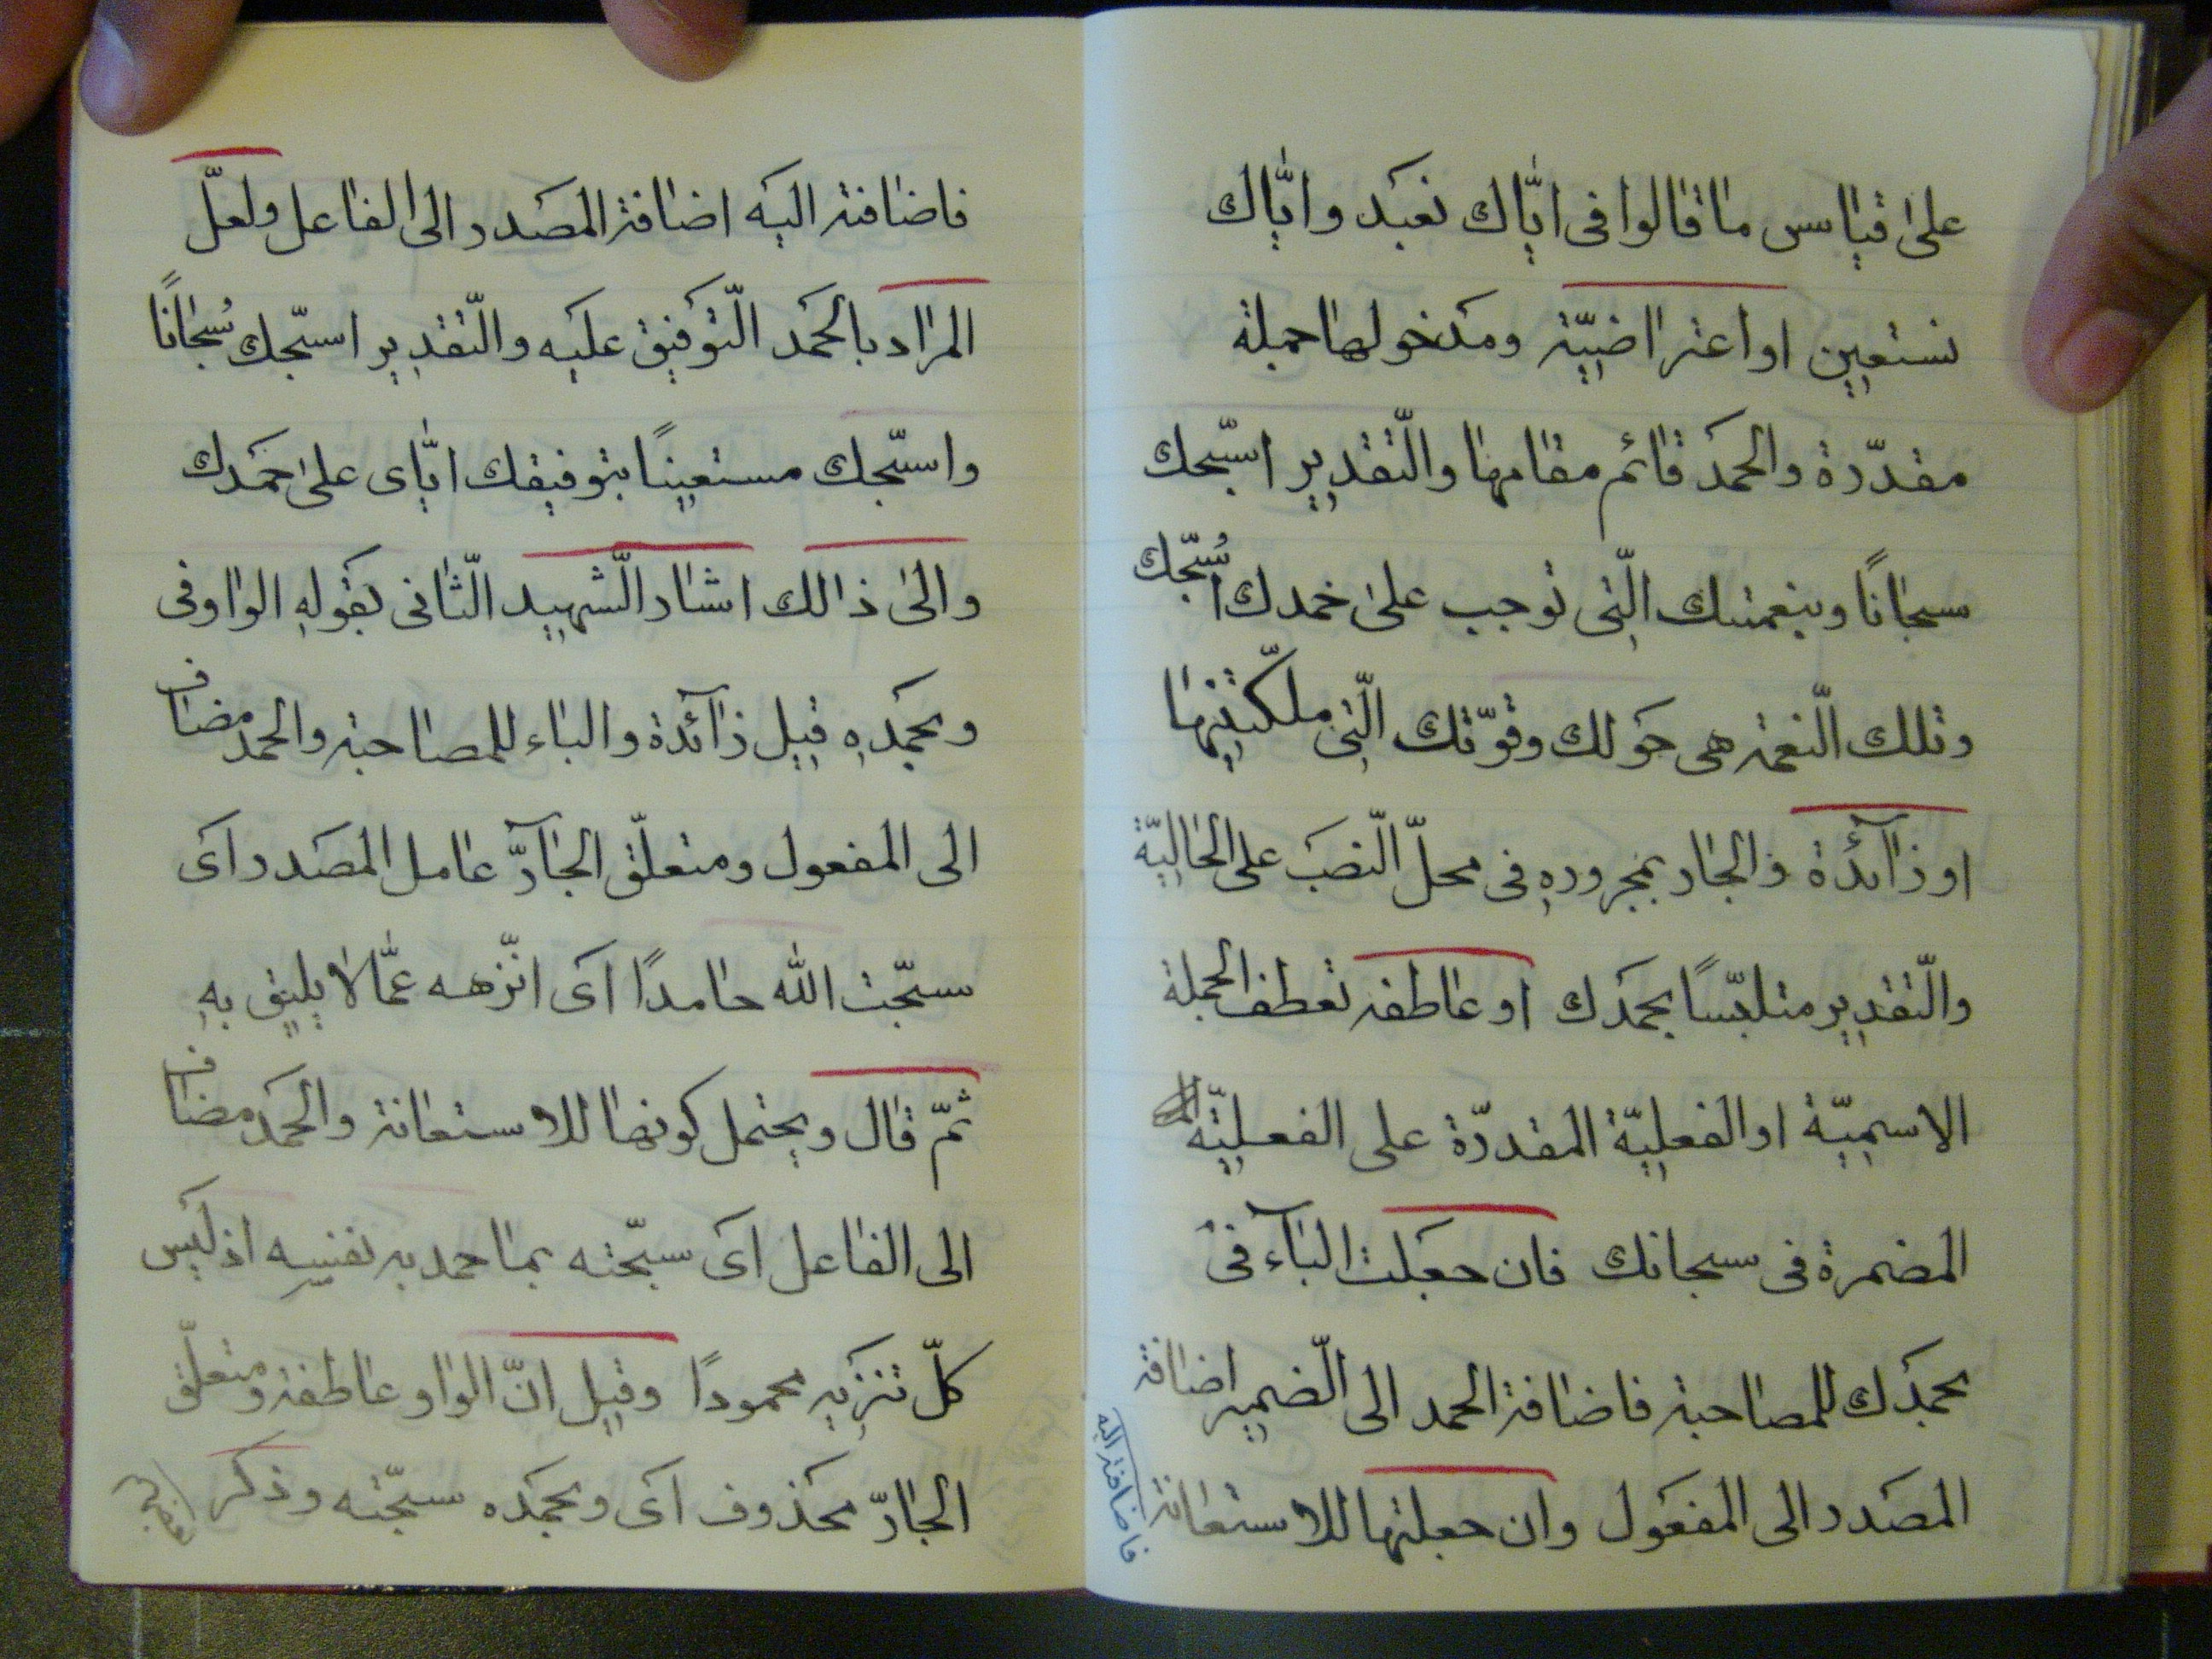 علىٰ قيٰاس مٰا قٰالوا فى ايّٰاك نعبَد و ايّٰاك
نستعين او اعترٰاضيّة و مَدخولهٰا جملة
مقدّرة والحمَد قٰائم مقٰامهٰا والتّقدير اسبّحك
سبحٰانًا و بنعمتك الّتى توجب علىٰ حمدك اُسَبّحك
و تلك النّعمة هى حَولك و قوّتك الّتى ملكّتنيهٰا
او زٰآئدة و الجٰار بمجرورهِ فى محلّ النّصَب على الحٰاليّة
والتّقدير متلبّسًا بحمَدك او عٰاطفة تعطف الجملة
الاسميّة او الفعليّة المقدرّة على الفعليّة
المضمرة فى سبحانك فان جعَلت البٰآء فى
بحمَدك للمصٰاحبة فاضٰافة الحمد الى الضّمير اضٰافة
المصَدر الى المفعَول و ان جعلتها للاستعٰانة
فاضافته اليه
فاضٰافته اليَه اضٰافة المصَدر الى الفٰاعل و لعلّ
المرٰاد بالحمَد التّوَفيق عليَه والتّقدير اسبّحك سُبحٰانًا
و اسبّحك مستعينًا بتوفيقك ايّٰاى علىٰ حمَدك
و الىٰ ذٰالك اشٰار الشّهيد الثّٰانى بقَولهِ الوٰاو فى
و بحمَدهِ قيل زٰآئدة و البٰاء للمصٰاحبة و الحمد مضٰاف
الى المفعول و متعلّق الجٰآرّ عٰامل المصَدر اىَ
سبّحت اللّه حٰامدًا اىَ انزّهه عمّٰا لاٰ يليق بهِ
ثمّ قٰال و يحتمل كونهٰا للاستعٰانة و الحمَد مضٰاف
الى الفٰاعل اىَ سبّحته بمٰا حمد به نفسه اذ ليَس
كلّ تنزيَه محمودًا و قيل انّ الوٰاو عٰاطفة و متعلّق
الجٰارّ محَذوف اىَ و بحمَده سبّحته و ذكر